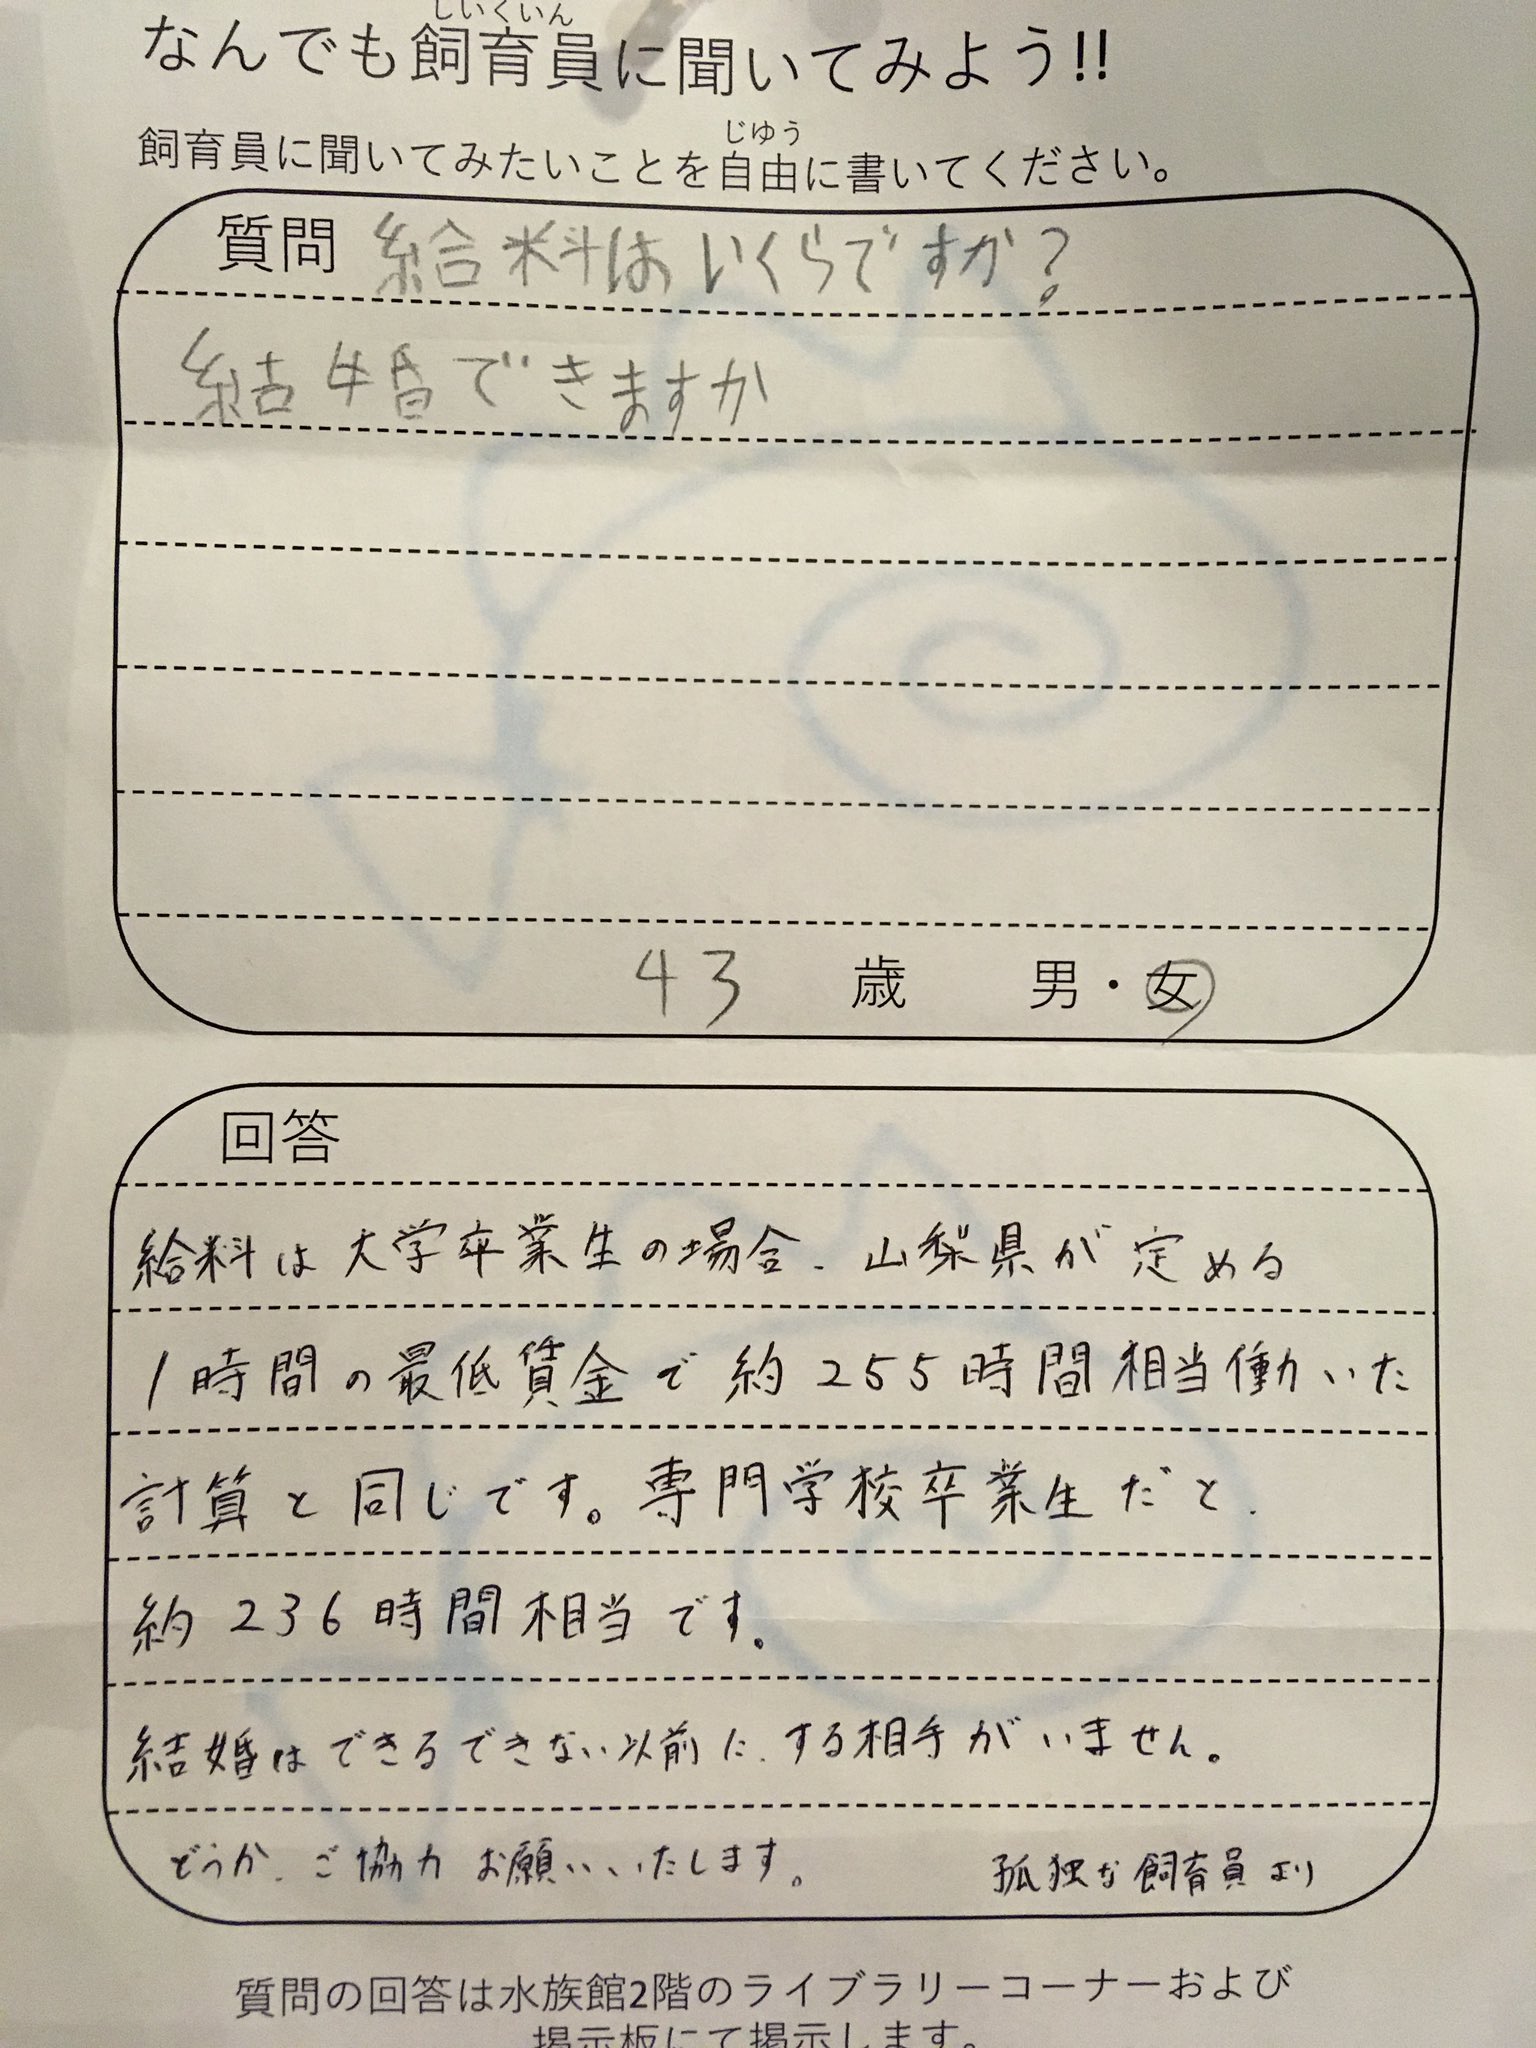 しいくいん
なんでも飼育員に聞いてみよう!!
じゆう
飼育員に聞いてみたいことを自由に書いてください。
質問 給料はいくらですか?
結婚できますか
43 歳 男・女
回答
給料は大学卒業生の場合、山梨県が定める
1時間の最低賃金で約255時間相当働いた
計算と同じです。専門学校卒業生だと、
約236時間相当です。
結婚はできるできない以前に、する相手がいません。
どうか、ご協力お願いいたします。 孤独な飼育員より
質問の回答は水族館2階のライブラリーコーナーおよび
掲示板にて掲示します。